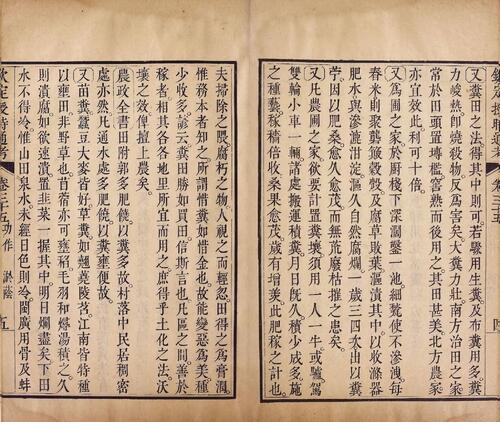 又糞田之法得其中則可若驟用生糞及布糞過多糞
力峻熱即燒殺物反為害矣大糞力壯南方治田之家
常於田頭置塼檻窖熟而後用之其田甚美北方農家
亦宜效此利可十倍
又為圃之家於厨棧下深濶鑿一池細甃使不滲洩每
舂米則聚礱簸穀殻及腐草敗葉漚漬其中以收滌器
肥水與滲漉泔淀漚久自然腐爛一歲三四次出以糞
苧因以肥桑愈久愈茂而無荒廢枯摧之患矣
又凡農圃之家欲要計置糞壤須用一人一牛或驢駕
雙輪小車一輛諸處搬運積糞月日旣久積少成多施
之種藝稼穡倍收桑果愈茂歲有增羨此肥稼之計也
夫掃除之猥腐朽之物人視之而輕忽田得之為膏潤
惟務本者知之所謂惜糞如惜金也故能變惡為美種
少收多諺云糞田勝如買田信斯言也凡區之間善於
稼者相其各各地里所宜而用之庶得乎土化之法沃
壤之效俾擅上農矣
農政全書田附郭多肥饒以糞多故村落中民居稠密
處亦然凡通水處多肥饒以糞壅便故
又苗糞蠶豆大麥皆好草糞如翹蕘陵苕江南皆特種
以壅田非野草也苜蓿亦可壅稻毛羽和燖湯積之久
則潰腐如欲速潰置韭菜一握其中明日爛盡矣下田
水不得冷惟山田泉水未經日色則冷閩廣用骨及蚌
欽定授時通考 卷三十五 功作 淤蔭 五